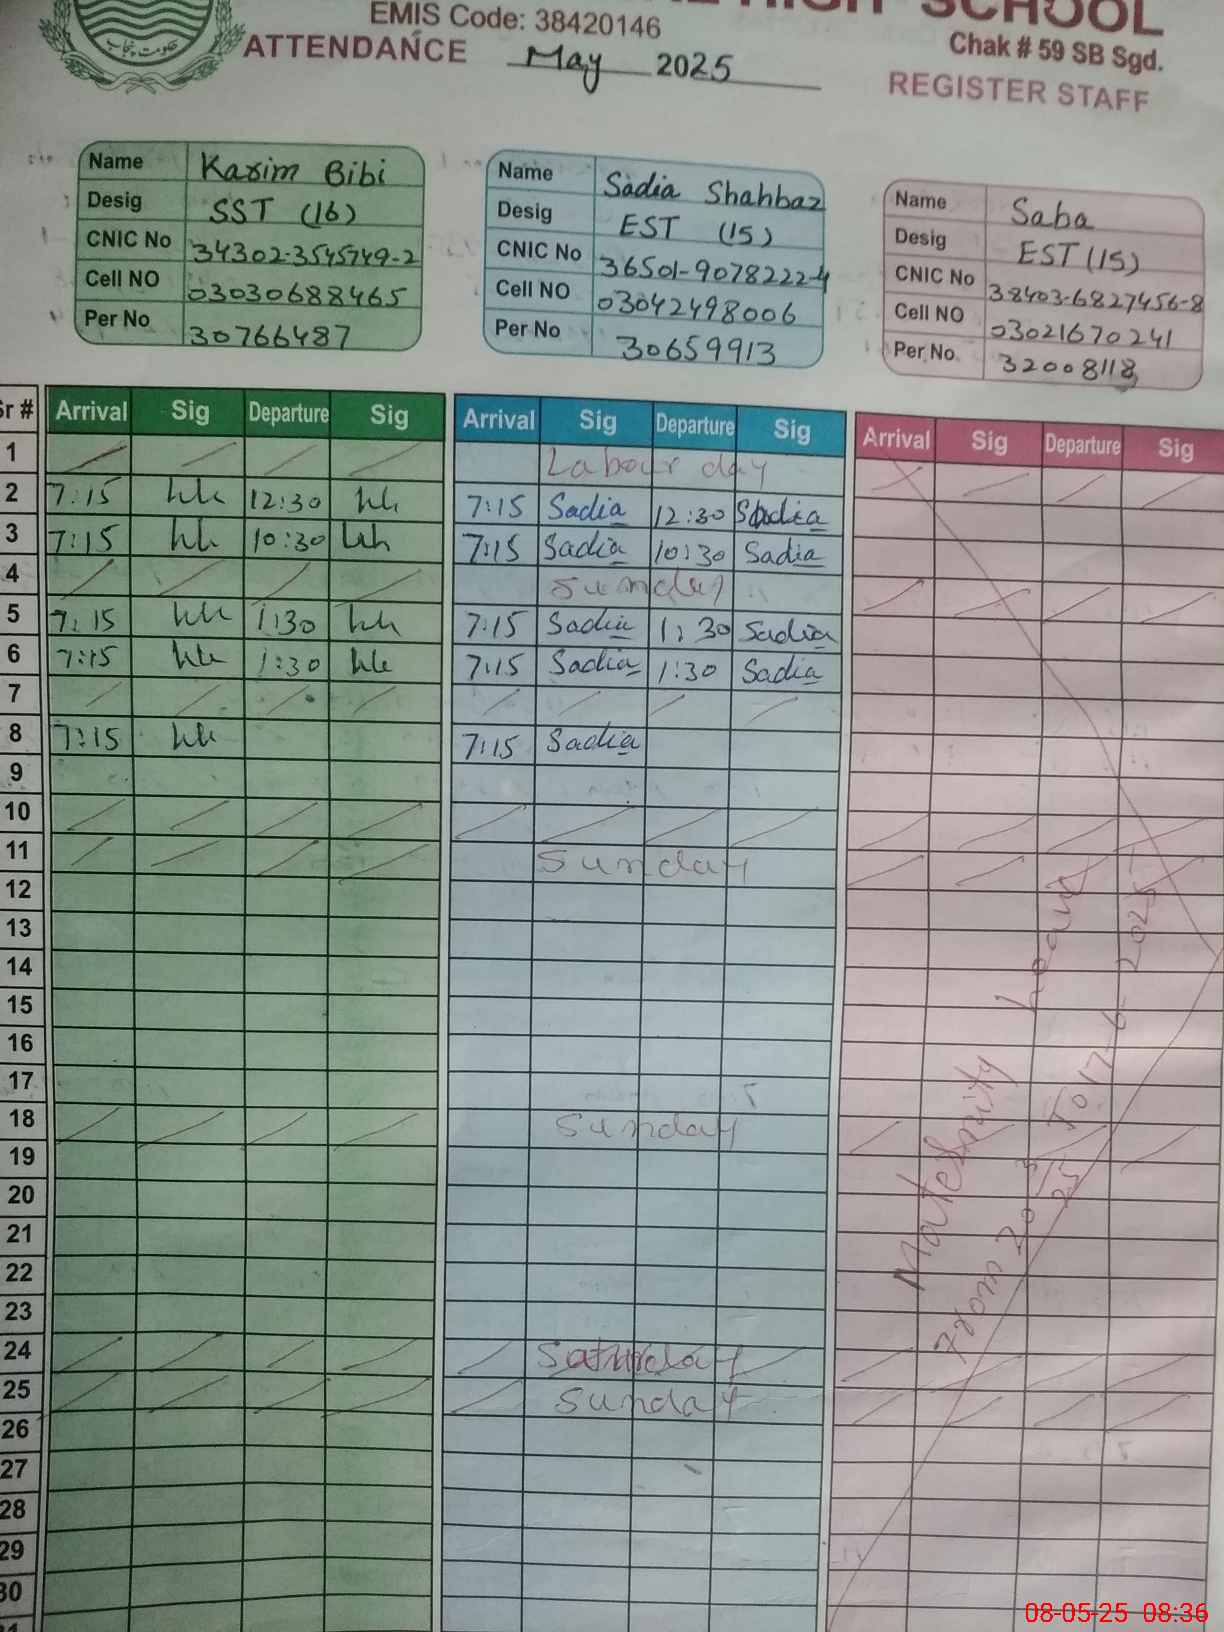 HIGH SCHOOL
EMIS Code: 38420146
Chak # 59 SB Sgd.
ATTENDANCE May 2025
REGISTER STAFF
حکومت پنجاب
Name Karim Bibi
Desig SST (16)
CNIC No 34302-3545749-2
Cell NO 03030688465
Per No 30766487
Name Sadia Shahbaz
Desig EST (15)
CNIC No 36501-9078222-4
Cell NO 03042498006
Per No 30659913
Name Saba
Desig EST (15)
CNIC No 38403-6827456-8
Cell NO 03021670241
Per No 32008118
Sr # Arrival Sig Departure Sig Arrival Sig Departure Sig Arrival Sig Departure Sig
1 Labour day
2 7:15 12:30 7:15 Sadia 12:30 Sadia
3 7:15 10:30 7:15 Sadia 10:30 Sadia
4 Sunday
5 7:15 1:30 7:15 Sadia 1:30 Sadia
6 7:15 1:30 7:15 Sadia 1:30 Sadia
7
8 7:15 7:15 Sadia
9
10
11 Sunday
12
13
14
15
16
17
18 Sunday
19
20
21
22
23
24 Saturday
25 Sunday
26
27
28
29
30
31
Maternity
From 20 3 25 To 17-6-2025
08-05-25 08:36